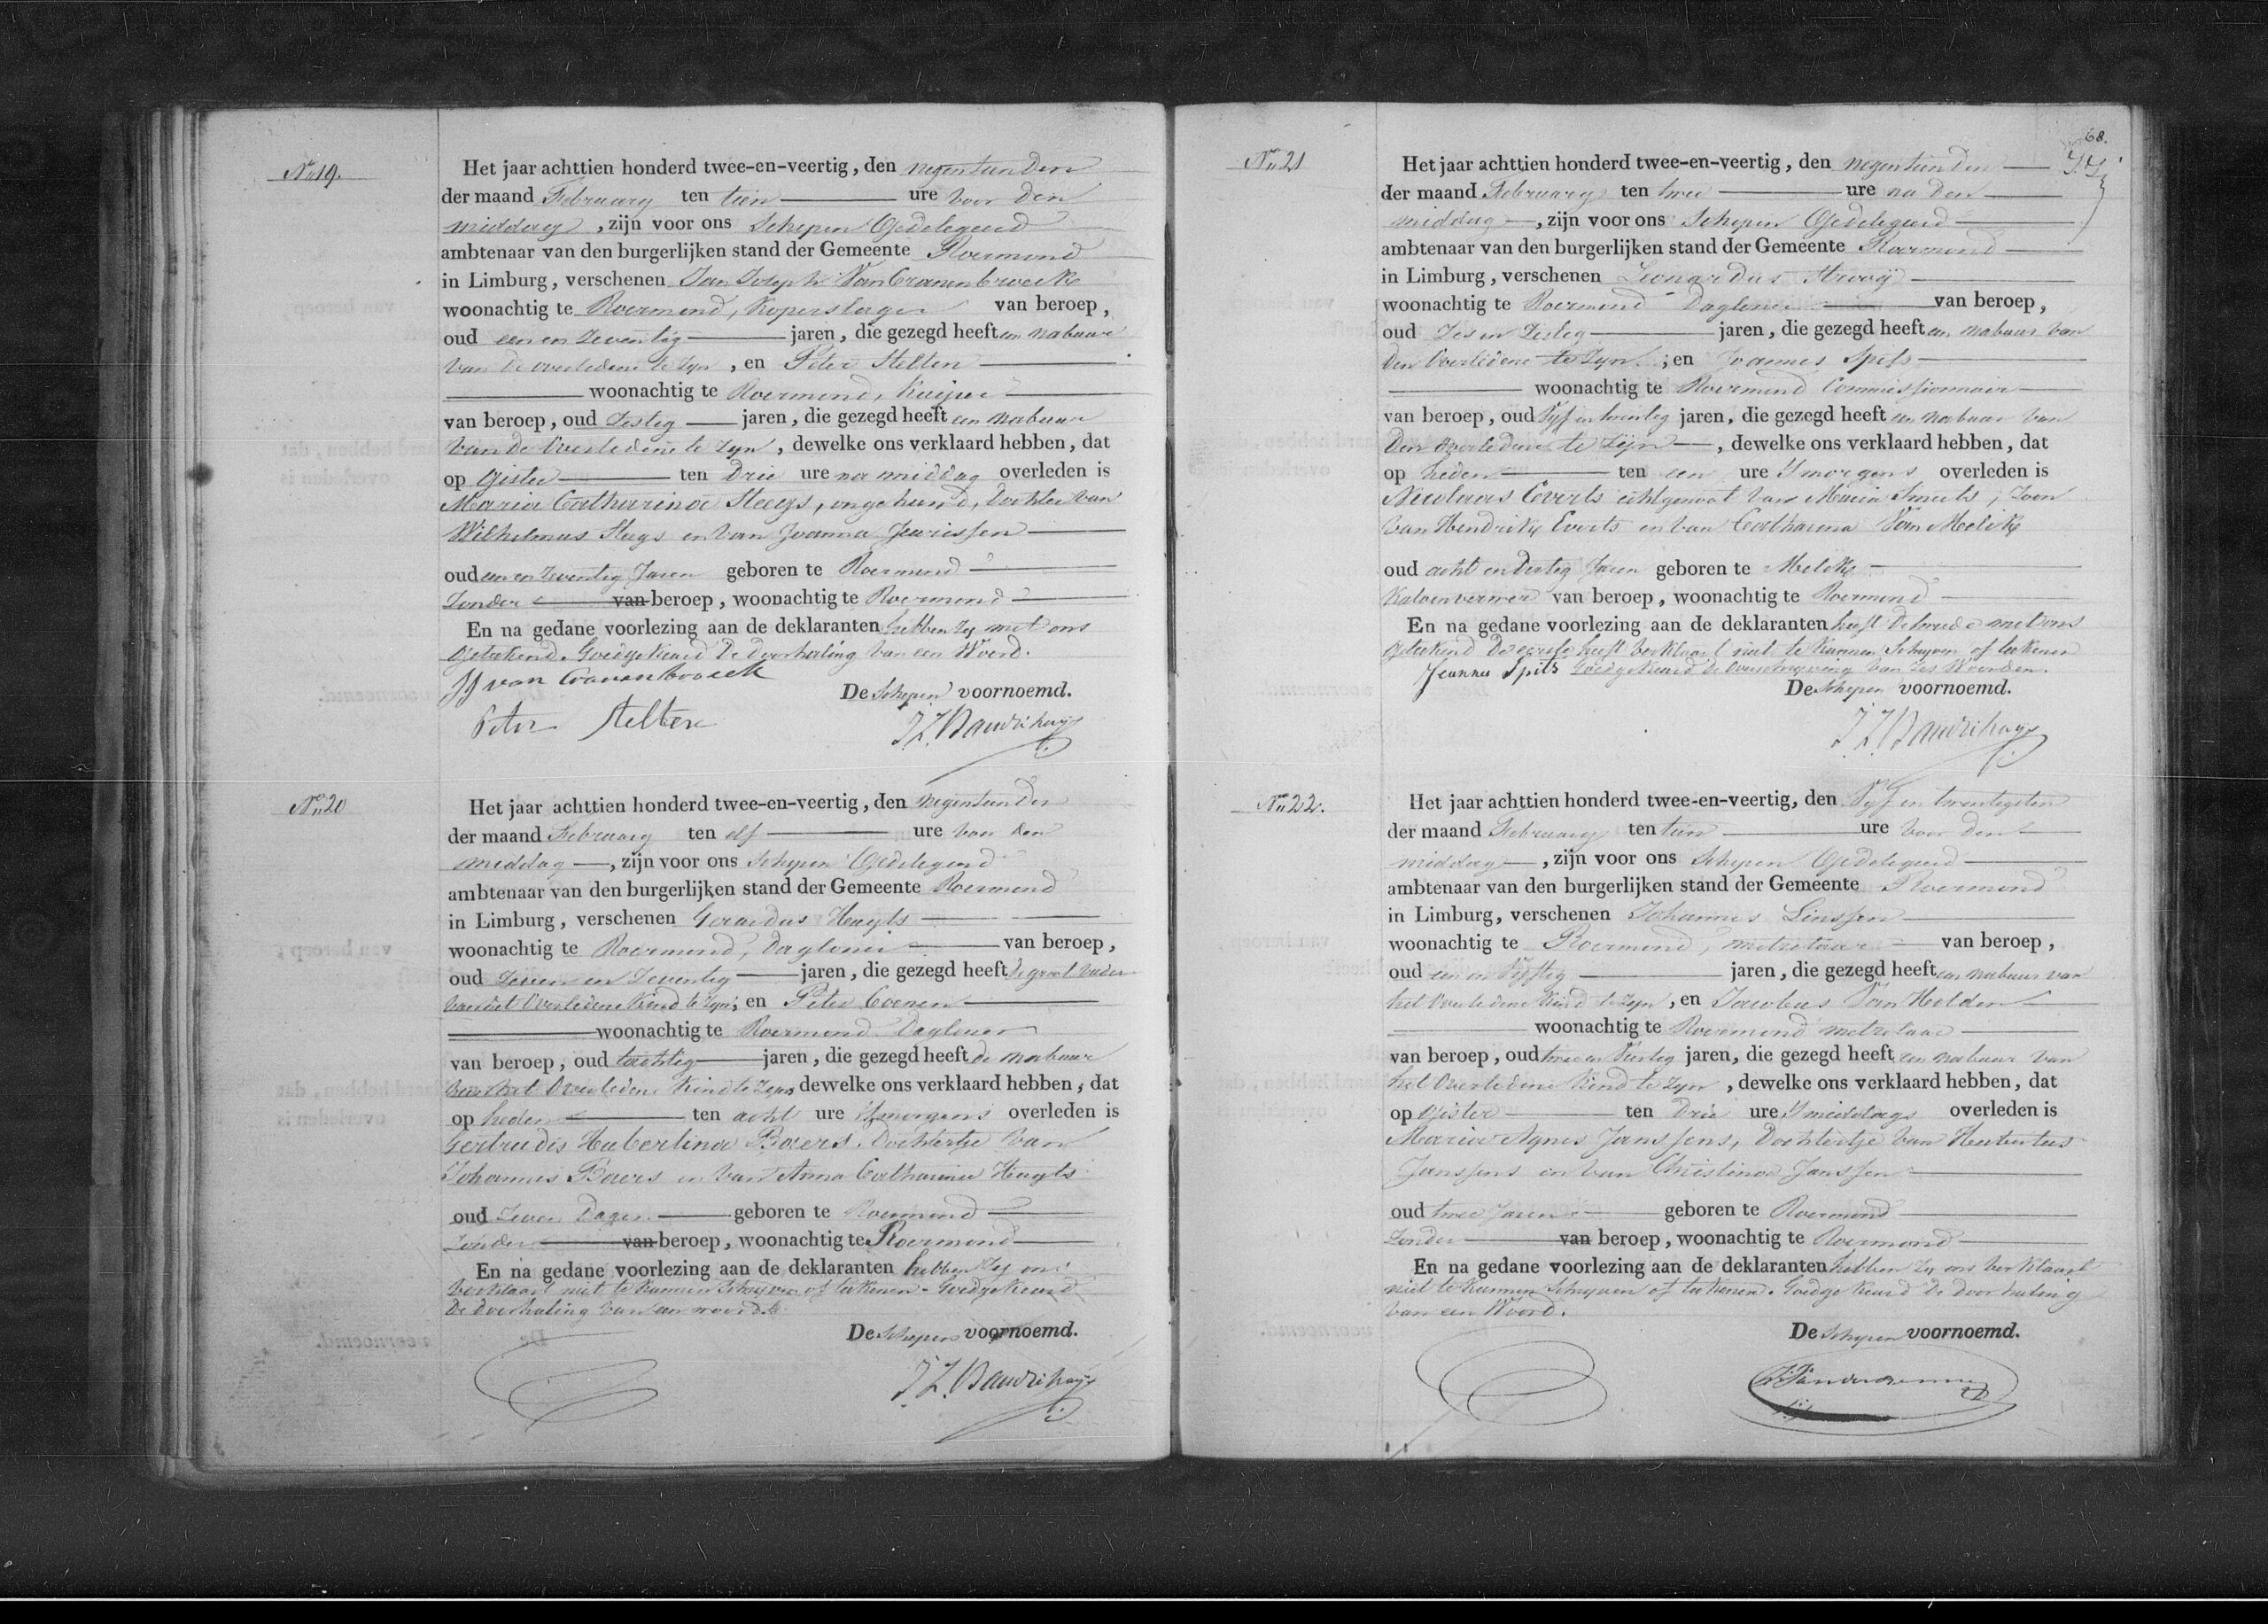 No 19.
Het jaar achttien honderd twee-en-veertig, den negentienden
der maand February ten tien ure voor den
middag, zijn voor ons Schepen Gedelegeerd
ambtenaar van den burgerlijken stand der Gemeente Roermond
in Limburg, verschenen Jan Joseph Van Cranenbroeck
woonachtig te Roermond, Koperslager van beroep,
oud een en zeventig jaren, die gezegd heeft een nabuur
van de overledene te zyn, en Peter Stelten
woonachtig te Roermond, Kuiper
van beroep, oud Zestig jaren, die gezegd heeft een nabuur
van de Overledene te zyn, dewelke ons verklaard hebben, dat
op gister ten Drie ure na middag overleden is
Maria Catharina Steegs, ongehuwd, Dochter van
Wilhelmus Steegs en van Joanna Jeurissen
oud een en zeventig Jaren geboren te Roermond
Zonder van beroep, woonachtig te Roermond
En na gedane voorlezing aan de deklaranten hebben zy met ons
geteekend. Goedgekeurd de doorhaling van een Woord.
JJ van Cranenbroeck
De Schepen voornoemd.
Peter Stelten
No 20
Het jaar achttien honderd twee-en-veertig, den negentienden
der maand February ten elf ure voor den
middag, zijn voor ons Schepen Gedelegeerd
ambtenaar van den burgerlijken stand der Gemeente Roermond
in Limburg, verschenen Gerardus Heugts
woonachtig te Roermond, Daglooner van beroep,
oud Zeven en Zeventig jaren, die gezegd heeft de groot vader
van het Overledene Kind te zyn, en Peter Coenen
woonachtig te Roermond Daglooner
van beroep, oud tachtig jaren, die gezegd heeft de nabuur
van het Overledene Kind te zyn, dewelke ons verklaard hebben, dat
op heden ten acht ure 's morgens overleden is
Gertrudis Hubertina Boers, Dochtertje van
Johannes Boers en van Anna Catharina Heugts
oud Zeven Dagen geboren te Roermond
Zonder van beroep, woonachtig te Roermond
En na gedane voorlezing aan de deklaranten hebben zy ons
verklaard niet te kunnen Schryven of teekenen. Goedgekeurd
De doorhaling van een woord.
De Schepen voornoemd.
68.
No 21
Het jaar achttien honderd twee-en-veertig, den negentienden
der maand February ten twee ure na den
middag, zijn voor ons Schepen Gedelegeerd
ambtenaar van den burgerlijken stand der Gemeente Roermond
in Limburg, verschenen Leonardus Strooy
woonachtig te Roermond Daglooner van beroep,
oud Zes en Zestig jaren, die gezegd heeft een nabuur van
den Overledene te Zyn; en Joannes Spits
woonachtig te Roermond Commissionnair
van beroep, oud Vyf en twintig jaren, die gezegd heeft een nabuur van
den Overledene te zyn, dewelke ons verklaard hebben, dat
op heden ten een ure 's morgens overleden is
Nicolaas Everts echtgenoot van Maria Smeets, Zoon
van Hendrik Everts en van Catharina Van Melick
oud acht en Dertig Jaren geboren te Melick
van beroep, woonachtig te Roermond
En na gedane voorlezing aan de deklaranten heeft de tweede met ons
geteekend De eerste heeft verklaard niet te kunnen Schryven of teekenen
Jeannes Spits Goedgekeurd de overschryving van zes Woorden.
De Schepen voornoemd.
No 22.
Het jaar achttien honderd twee-en-veertig, den Vyf en twintigsten
der maand February ten tien ure voor den
middag, zijn voor ons Schepen Gedelegeerd
ambtenaar van den burgerlijken stand der Gemeente Roermond
in Limburg, verschenen Johannes Linssen
woonachtig te Roermond, metzelaar van beroep,
oud een en Vyftig jaren, die gezegd heeft een nabuur van
het Overledene Kind te zyn, en Jacobus Van Helden
woonachtig te Roermond metzelaar
van beroep, oud twee en Veertig jaren, die gezegd heeft een nabuur van
het Overledene Kind te zyn, dewelke ons verklaard hebben, dat
op gister ten Drie ure 's middags overleden is
Maria Agnes Janssens, Dochtertje van Hubertus
Janssens en van Christina Janssen
oud twee Jaren geboren te Roermond
Zonder van beroep, woonachtig te Roermond
En na gedane voorlezing aan de deklaranten hebben zy ons verklaard
niet te kunnen Schryven of teekenen. Goedgekeurd de doorhaling
van een Woord.
De Schepen voornoemd.